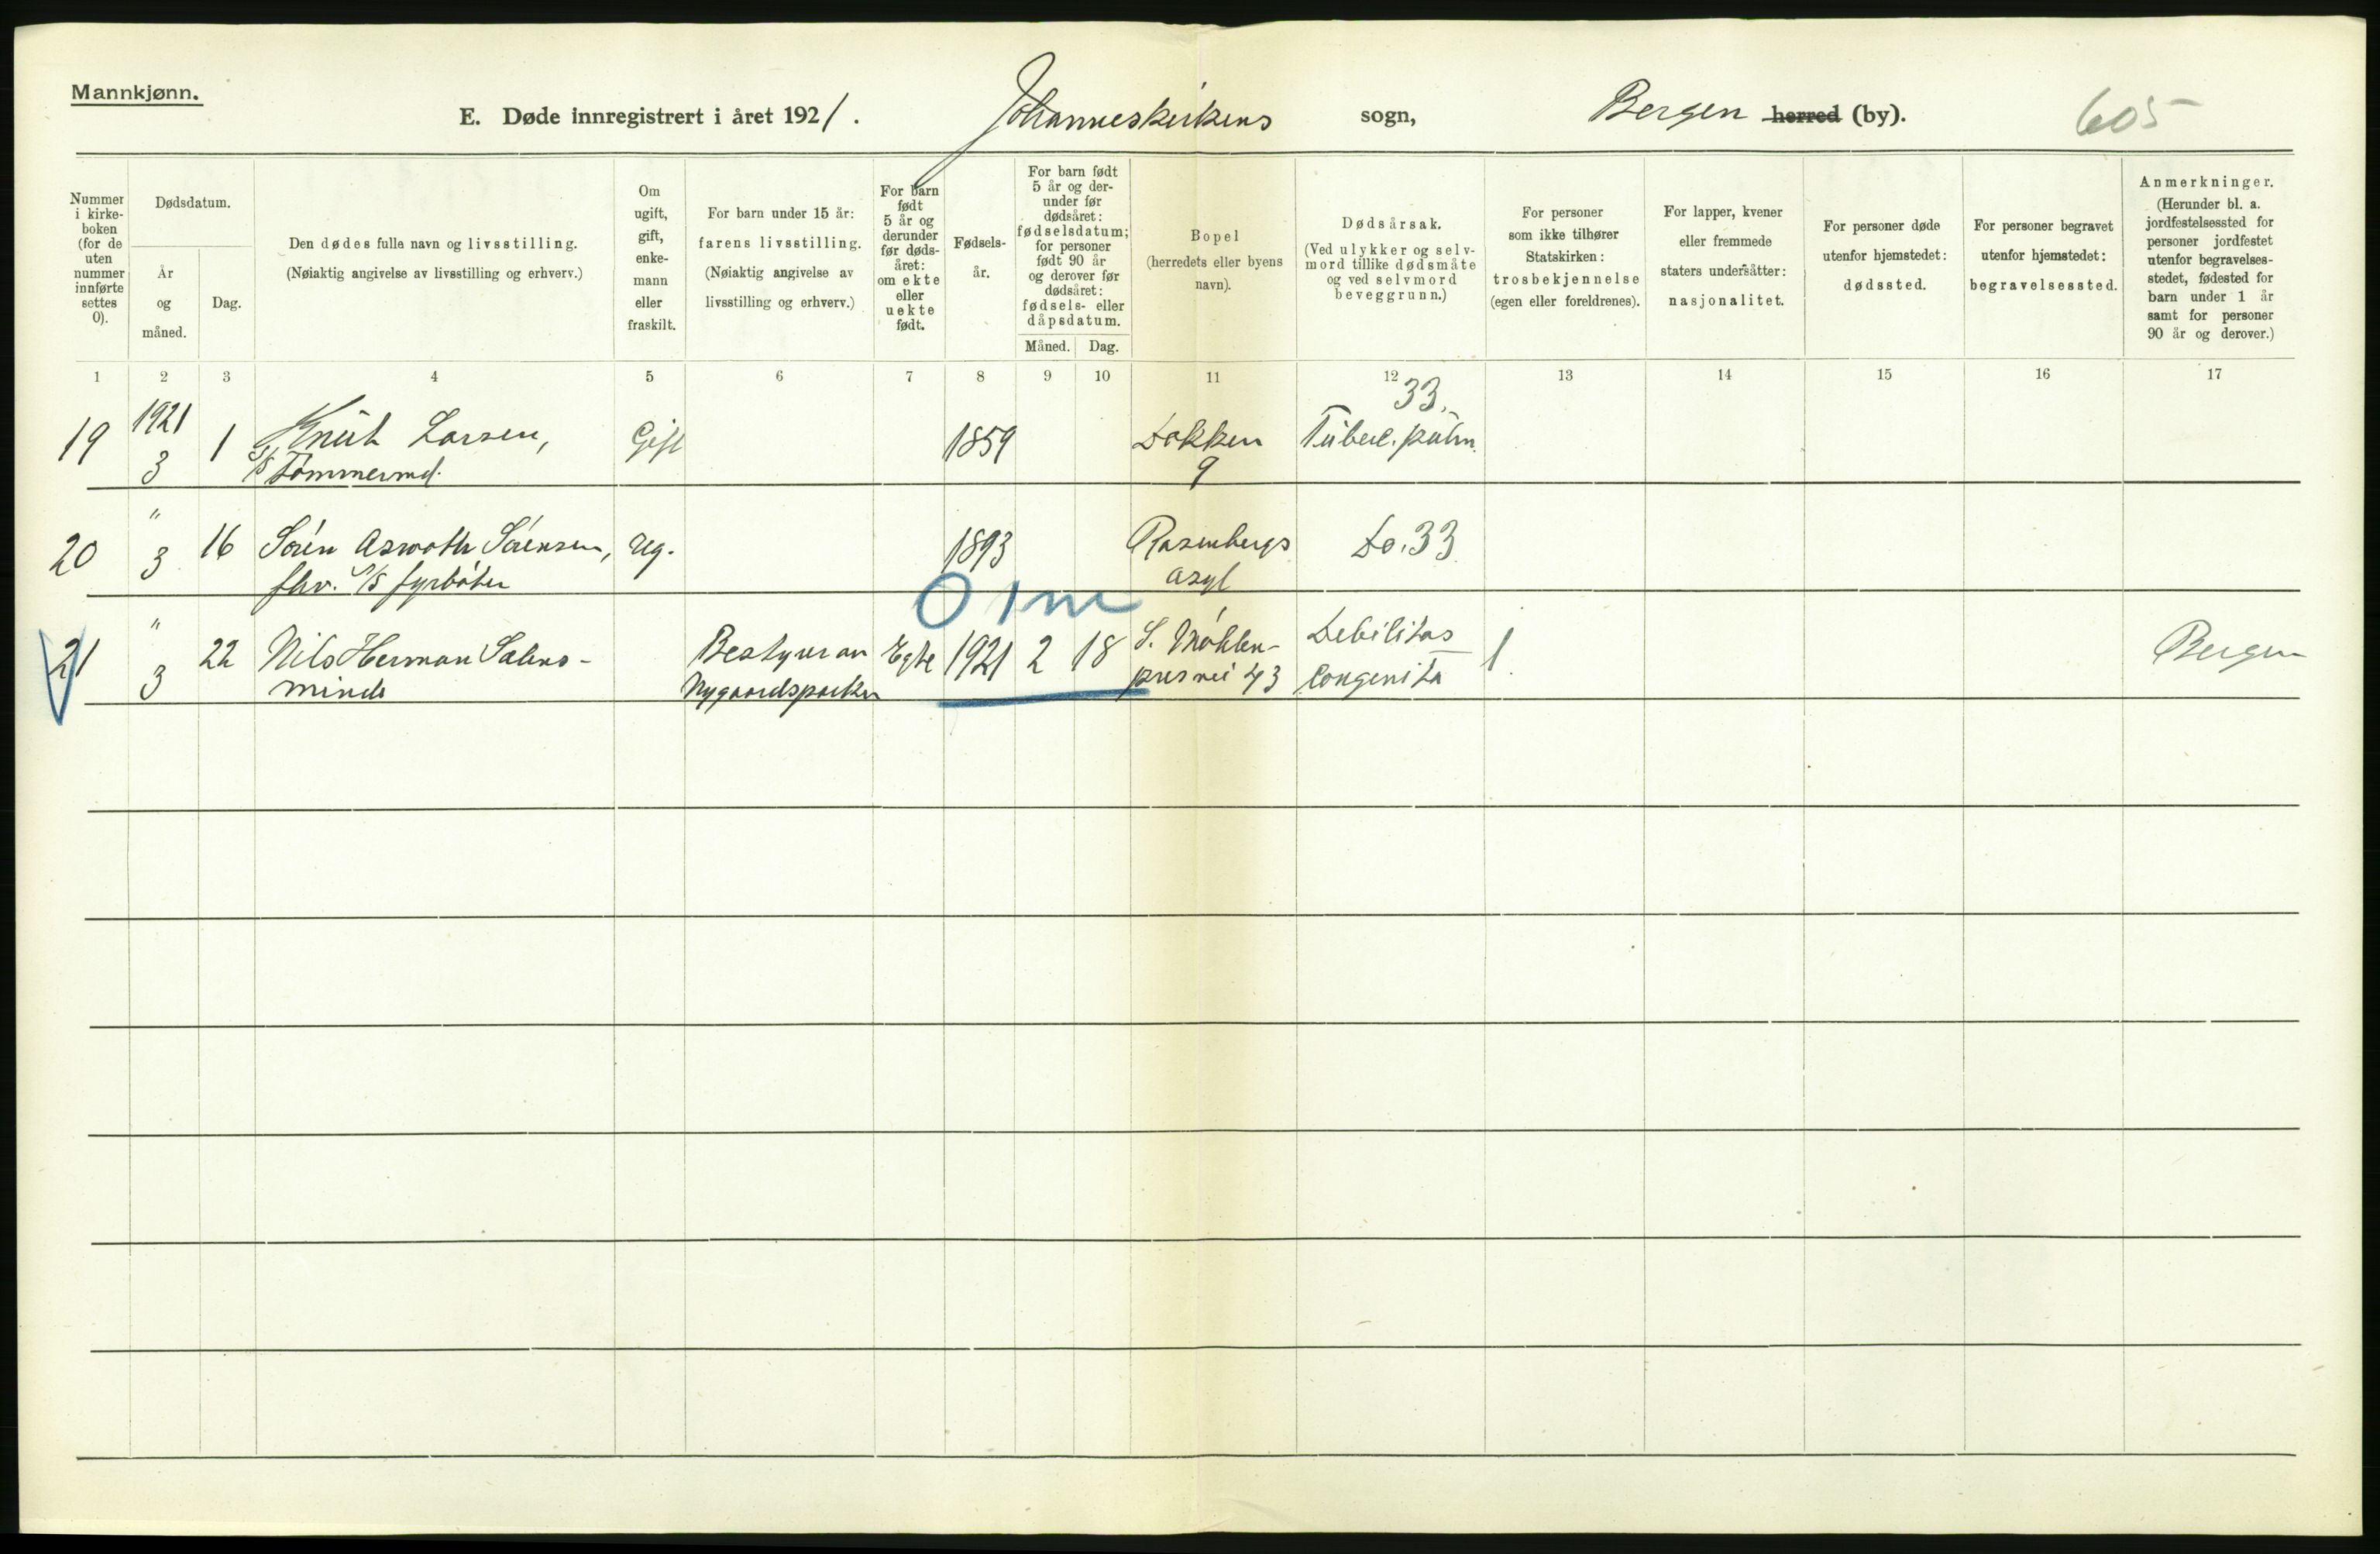 Mannkjønn.
E. Døde innregistrert i året 1921. Johanneskirkens sogn, Bergen herred (by). 605
Nummer i kirke-boken (for de uten nummer innførte settes 0).
Dødsdatum.
År og måned.
Dag.
Den dødes fulle navn og livsstilling.
(Nøiaktig angivelse av livsstilling og erhverv.)
Om ugift, gift, enke-mann eller fraskilt.
For barn under 15 år:
farens livsstilling.
(Nøiaktig angivelse av livsstilling og erhverv.)
For barn født 5 år og derunder før døds-året: om ekte eller uekte født.
Fødsels-år.
For barn født 5 år og der-under før dødsåret: fødselsdatum; for personer født 90 år og derover før dødsåret: fødsels- eller dåpsdatum.
Måned. Dag.
Bopel
(herredets eller byens navn).
Dødsårsak.
(Ved ulykker og selv-mord tillike dødsmåte og ved selvmord beveggrunn.)
For personer som ikke tilhører Statskirken: trosbekjennelse (egen eller foreldrenes).
For lapper, kvener eller fremmede staters undersåtter: nasjonalitet.
For personer døde utenfor hjemstedet: dødssted.
For personer begravet utenfor hjemstedet: begravelsessted.
Anmerkninger.
(Herunder bl. a. jordfestelsessted for personer jordfestet utenfor begravelses-stedet, fødested for barn under 1 år samt for personer 90 år og derover.)
1 2 3 4 5 6 7 8 9 10 11 12 13 14 15 16 17
33.
19 1921 1 Knut Larsen, Gift 1859 Dokken Tuberc. pulm.
3 S/S Tømmermd. 9
20 " 16 Sørén Asworth Sörensen, ug. 1893 Rosenbergs Do. 33
3 fhv. S/S fyrböter asyl
0 1 m
21 " 22 Nils Herman Salens- Bestyrer av Egte 1921 2 18 S. Möhlen- Debilitas 1 Bergen
3 minde Nygaardsparken prisvei 43 Congenita